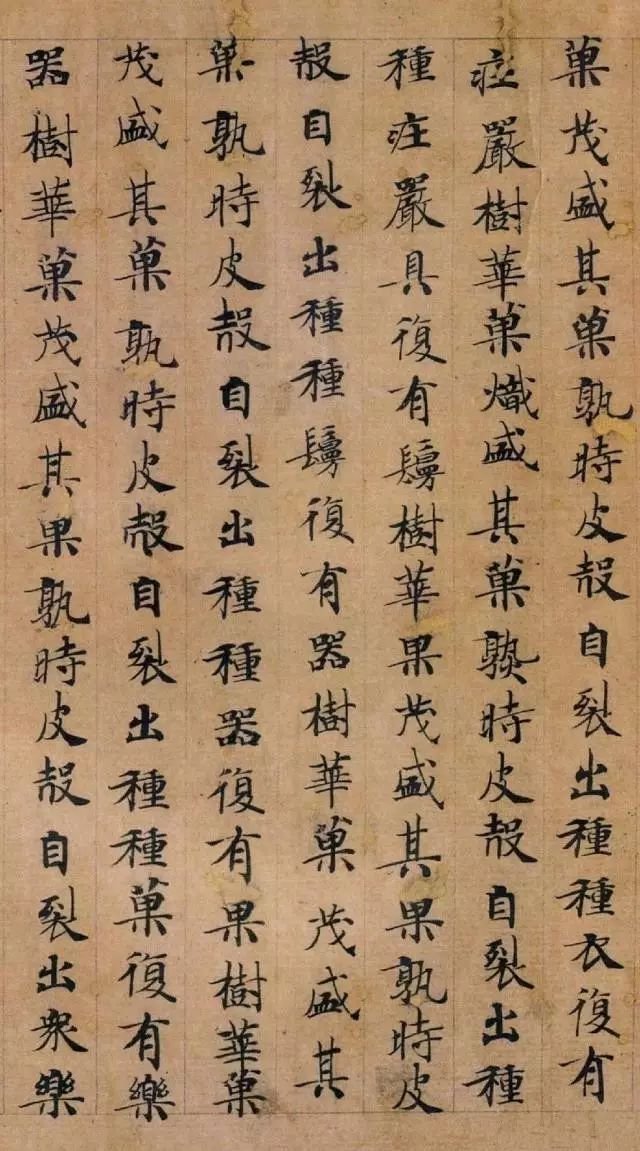 菓茂盛其菓孰時皮殼自裂出種種衣復有
莊嚴樹華菓熾盛其菓熟時皮殼自裂出種
種莊嚴具復有鬘樹華果茂盛其果孰時皮
殼自裂出種種鬘復有器樹華菓茂盛其
菓孰時皮殼自裂出種種器復有果樹華菓
茂盛其菓孰時皮殼自裂出種種菓復有樂
器樹華菓茂盛其果孰時皮殼自裂出衆樂